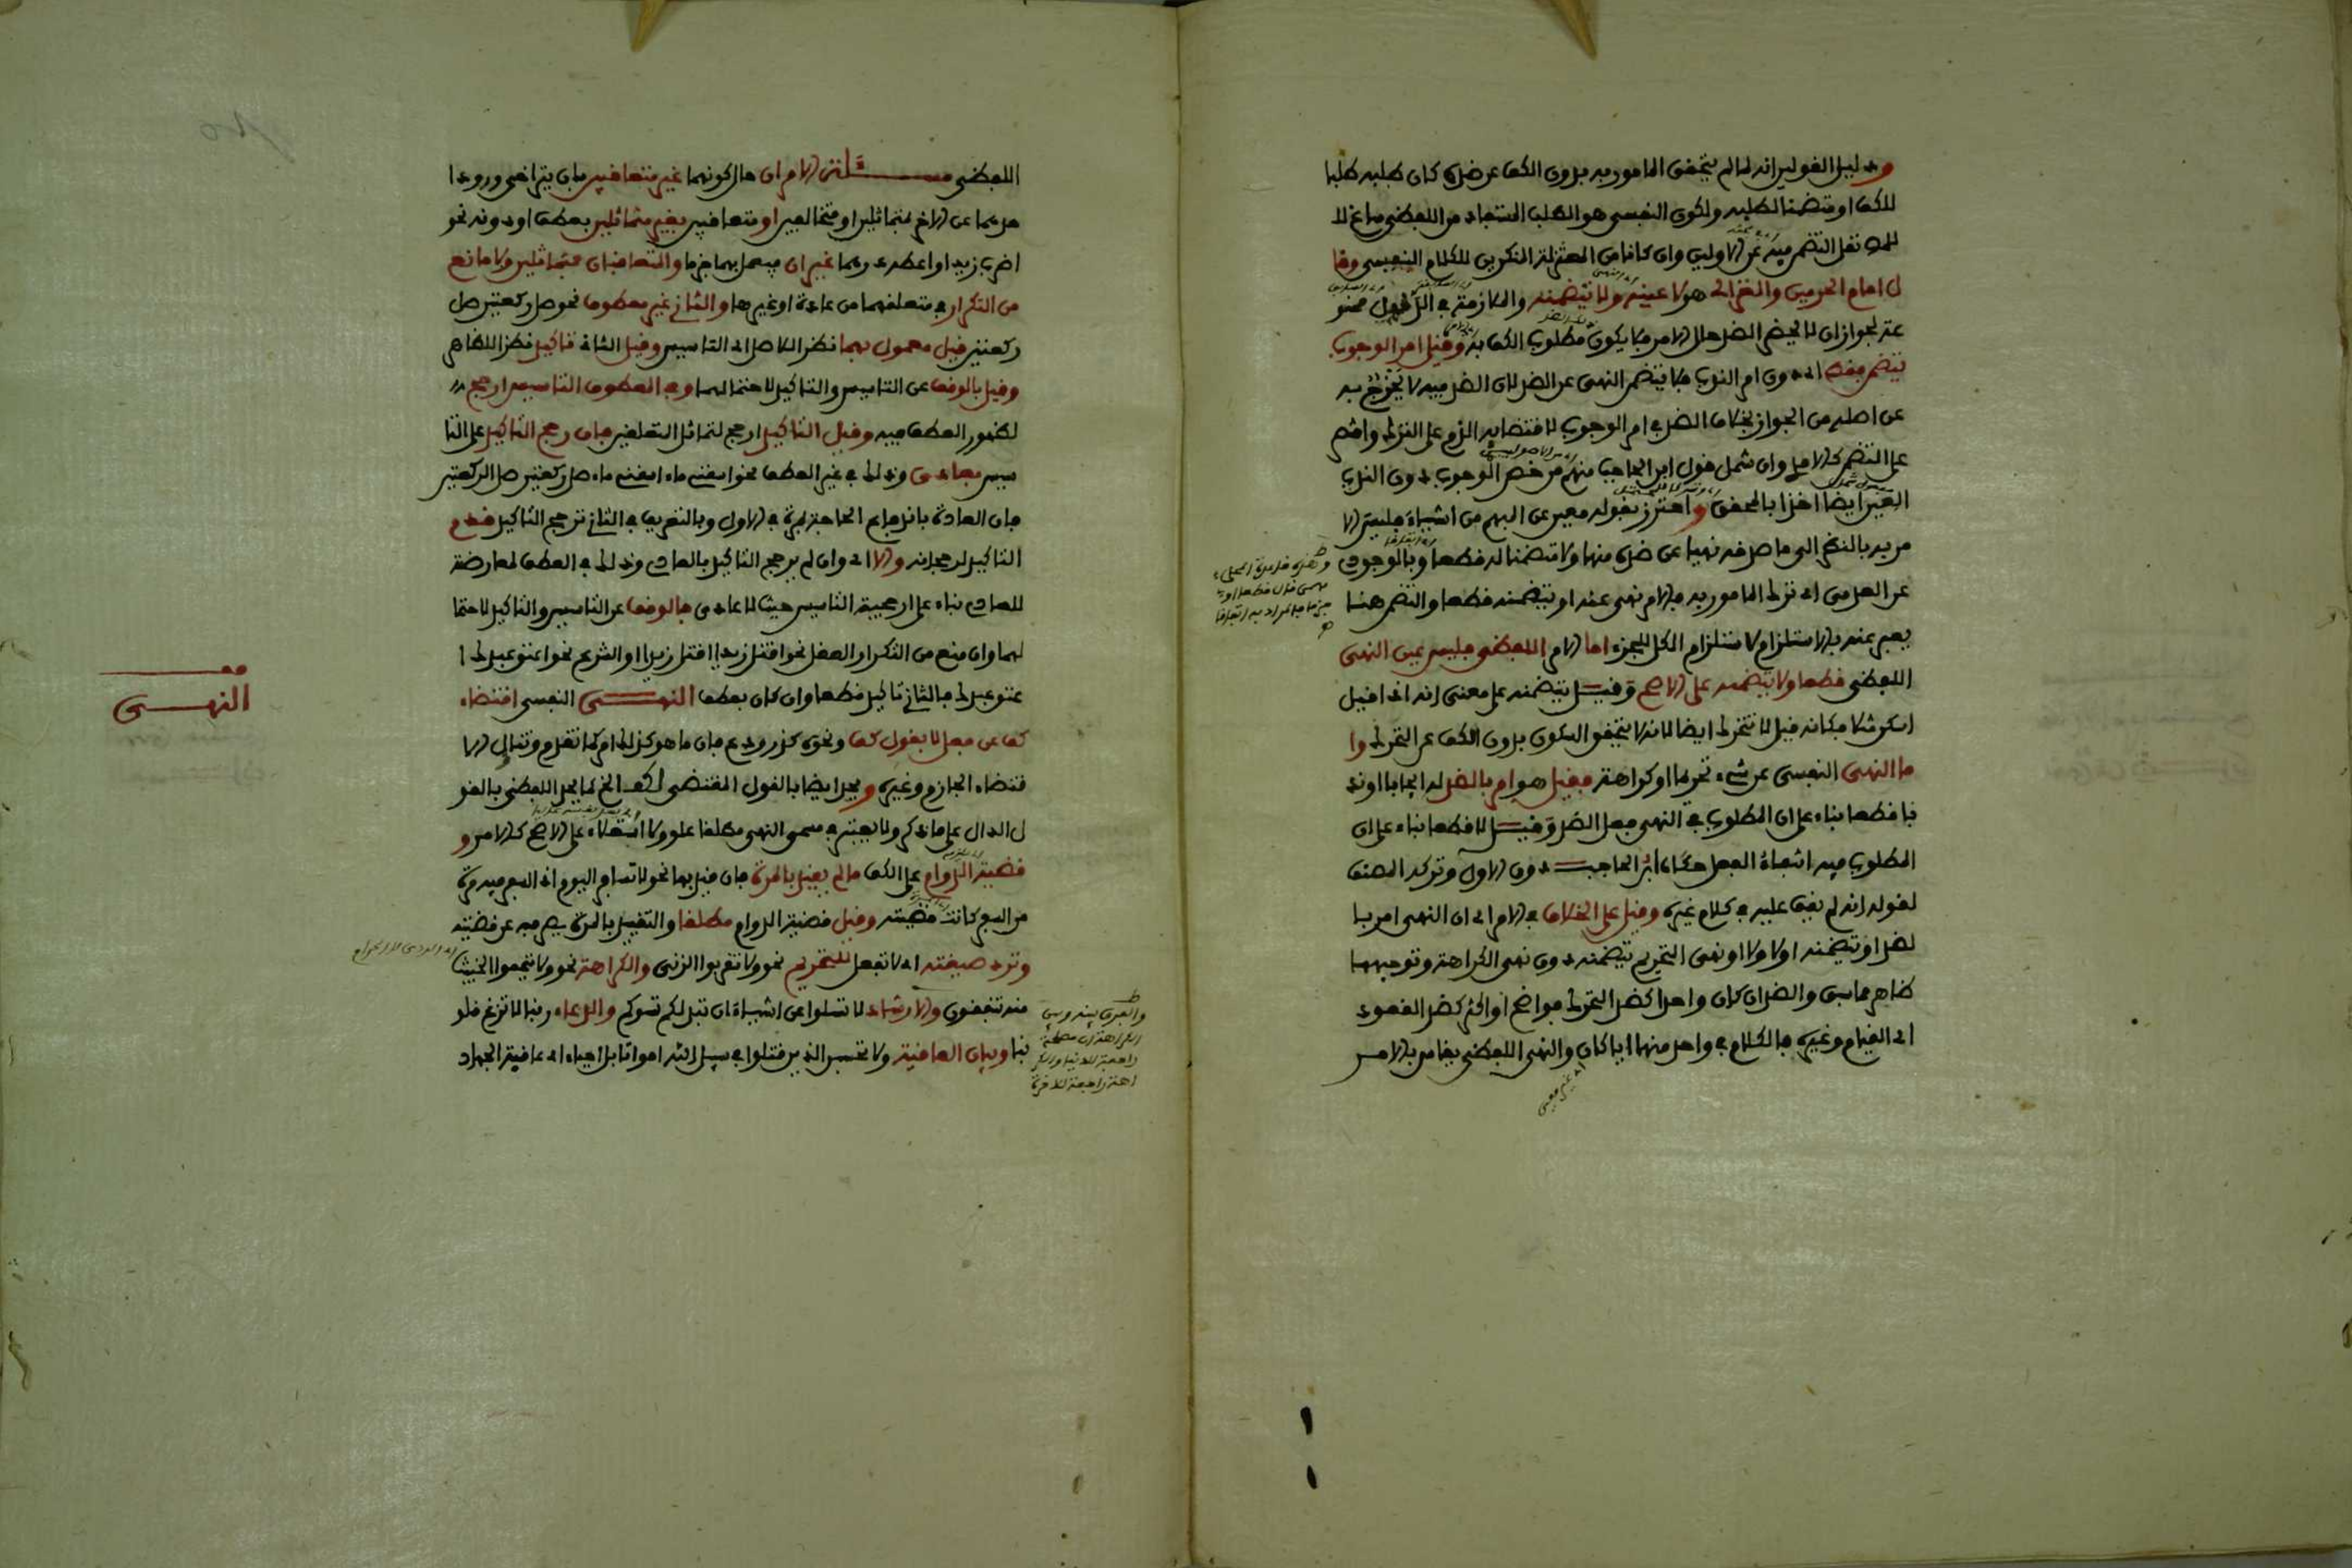 ودليل القولين انه لما لم يتحقق المامور به بدون الكف عن ضده كان طلبه طلبا
للكف او متضمنا لطلبه ولكون النفسي هو الطلب المستفاد من اللفظي ساغ لا
نقل التضمن فيه عن الاولين وان كانا من المعتزلة المنكرين للكلام النفسي وقا
ل امام الحرمين والغزالي هو لا عينه ولا يتضمنه والملازمة في الدليل ممنو
عة لجواز ان لا يحضر الضد حال الامر فلا يكون مطلوب الكف به وقيل امر الوجوب
يتضمن فقط اي دون امر الندب فلا يتضمن النهي عن الضد لان الضد فيه لا يخرج به
عن اصله من الجواز بخلاف الضد في امر الوجوب لاقتضايه الذم على الترك واقتصر
على التضمن كالامدي وان شمل قول ابن الحاجب منهم من خص الوجوب دون الندب
العين ايضا اخذا بالمحقق واحترز بقوله معين عن المبهم من اشياء فليس الا
مر به بالنظر الى ما صدقه نهيا عن ضده منها ولا متضمنا له قطعا وبالوجودي
عن العدمي اي ترك المامور به فالامر نهي عنه او يتضمنه قطعا والتضمن هنا
يعبر عنه بالاستلزام لاستلزام الكل للجزء اما الامر اللفظي فليس عين النهي
اللفظي قطعا ولا يتضمنه على الاصح وقيل يتضمنه على معنى انه اذا قيل
اسكن مثلا فكانه قيل لا تتحرك ايضا لانه لا يتحقق السكون بدون الكف عن التحرك وا
ما النهي النفسي عن شيء تحريما او كراهة فقيل هو امر بالضد له ايجابا او ند
با قطعا بناء على ان المطلوب في النهي فعل الضد وقيل لا قطعا بناء على ان
المطلوب فيه انتفاء الفعل حكاه ابن الحاجب دون الاول وتركه المصنف
لقوله انه لم يقف عليه في كلام غيره وقيل على الخلاف في الامر اي ان النهي امر با
لضد او يتضمنه اولا ولا او نهي التحريم يتضمنه دون نهي الكراهة وتوجيهها
ظاهر مما سبق والضد ان كان واحدا كضد التحرك فواضح او اكثر كضد القعود
اي القيام وغيره فالكلام في واحد منها ايا كان والنهي اللفظي يقاس بالامر
اي غير معين
اللفظي مسئلة الامران حال كونهما غير متعاقبين بان يتراخى ورود ا
حدهما عن الاخر بمتماثلين او متخالفين او متعاقبين بغير متماثلين بعطف او دونه نحو
اضرب زيدا او اعطه درهما غيران فيعمل بهما جزما والمتعاقبان بمتماثلين ولا مانع
من التكرار في متعلقهما من عادة او غيرها والثاني غير معطوف نحو صل ركعتين صل
ركعتين قيل معمول بهما نظرا للاصل اي التاسيس وقيل الثاني تاكيد نظرا للظاهر
وقيل بالوقف عن التاسيس والتاكيد لاحتمالهما وفي المعطوف التاسيس ارجح
لظهور العطف فيه وقيل التاكيد ارجح لتماثل المتعلقين فان رجح التاكيد على التا
سيس بعادي وذلك في غير العطف نحو اسقني ماء اسقني ماء صل ركعتين صل الركعتين
فان العادة باندفاع الحاجة بمرة في الاول وبالتعريف في الثاني ترجح التاكيد قدم
التاكيد لرجحانه والا اي وان لم يرجح التاكيد بالعادي وذلك في العطف لمعارضة
للعادي بناء على ارجحية التاسيس حيث لا عادي فالوقف عن التاسيس والتاكيد لاحتما
لهما وان منع من التكرار العقل نحو اقتل زيدا اقتل زيدا او الشرع نحو اعتق عبدك ا
عتق عبدك فالثاني تاكيد قطعا وان كان بعطف النهي النفسي اقتضاء
كف عن فعل لا بقول كف ونحوه كذر ودع فان ما هو كذلك امر كما تقدم وتناول الا
قتضاء الجازم وغيره ويحد ايضا بالقول المقتضي لكف الخ كما يحد اللفظي بالقو
ل الدال على ما ذكر ولا يعتبر في مسمى النهي مطلقا علو ولا استعلاء على الاصح كالامر و
قضيته الدوام على الكف ما لم يقيد بالمرة فان قيد بها نحو لا تسافر اليوم اذ السفر فيه مرة
من السفر كانت قضيته وقيل قضيته الدوام مطلقا والتقييد بالمرة يصرفه عن قضيته
وترد صيغته اي لا تفعل للتحريم نحو ولا تقربوا الزنى والكراهة نحو ولا تيمموا الخبيث
منه تنفقون والارشاد لا تسئلوا عن اشياء ان تبد لكم تسؤكم والدعاء ربنا لا تزغ قلو
بنا وبيان العاقبة ولا تحسبن الذين قتلوا في سبيل الله امواتا بل احياء اي عاقبة الجهاد
والفرق بينه وبين
الكراهة ان مصلحته
راجعة للدنيا والكر
اهة راجعة للاخرة
النهي